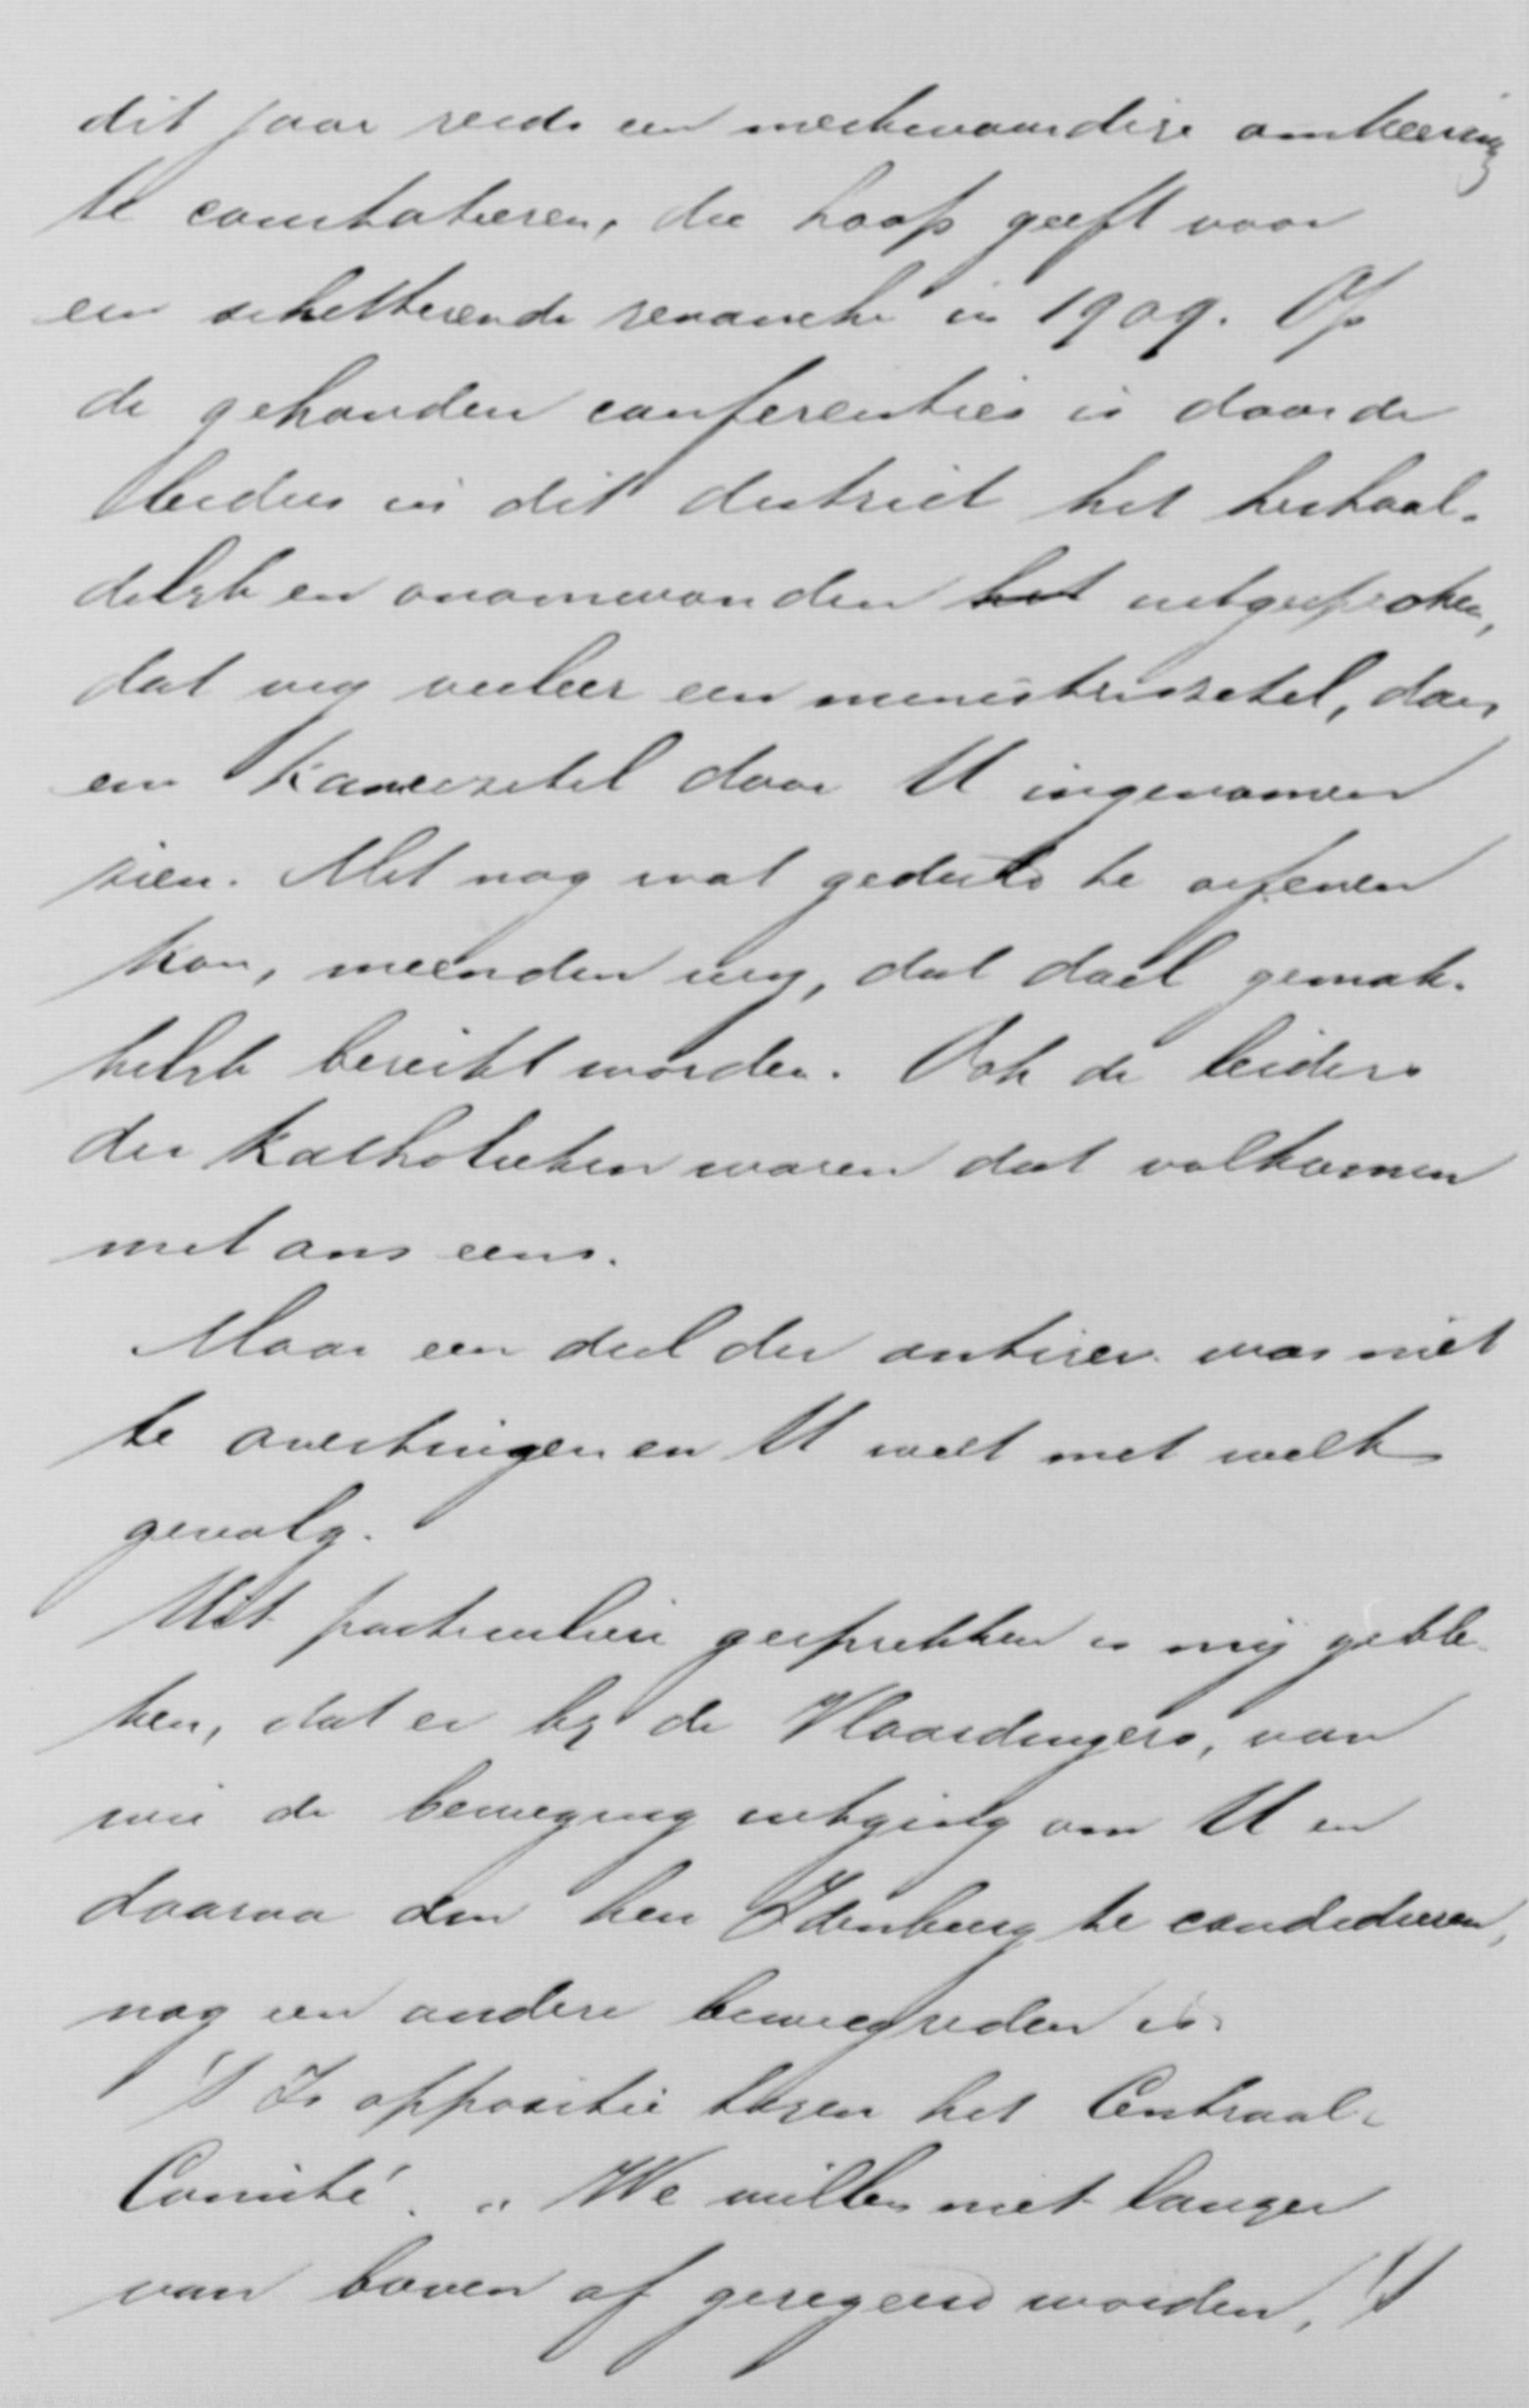 dit jaar reeds een merkwaardige omkeering
te constateeren, die hoop geeft voor
een schitterende revanche in 1909. Op
de gehouden conferenties is door de
leiders in dit district het herhaal-
delijk en onomwonden het uitgesproken,
dat wij veeleer een ministerszetel, dan
een Kamerzetel door U ingenomen
zien. Met nog wat geduld te oefenen
kon, meenden wij, dat doel gemak-
kelijk bereikt worden. Ook de leiders
der Katholieken waren dat volkomen
met ons eens.
Maar een deel der antirev. was niet
te overtuigen en U weet met welk
gevolg.
Uit particuliere gesprekken is mij geble-
ken, dat er bij de Vlaardingers, van
wie de beweging uitging om U en
daarna den heer Idenburg te candideeren,
nog een andere beweegreden is.
't Is oppositie tegen het Centraal-
Comité. „We willen niet langer
van boven af geregeerd worden, 't